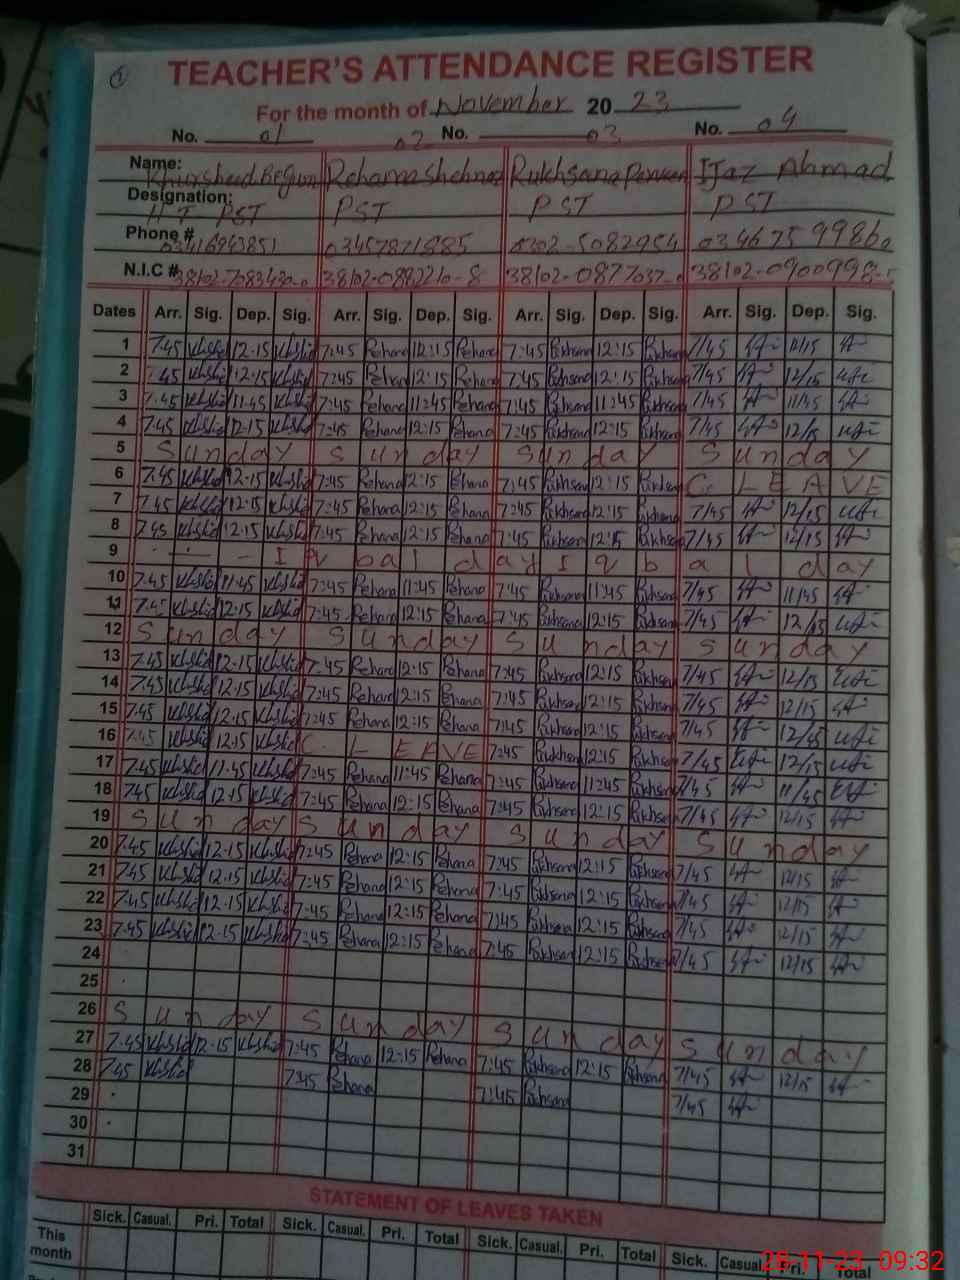 1
TEACHER'S ATTENDANCE REGISTER
For the month of November 20 23
No. 01 02 No. 03 No. 04
Name: Khursheed Begum Rehana Shehnaz Rukhsana Perveen Ijaz Ahmad
Designation: HT PST PST PST PST
Phone # 03416943851 03457871885 0302-5082954
N.I.C # 38102-0882210-8
Dates Arr. Sig. Dep. Sig. Arr. Sig. Dep. Sig. Arr. Sig. Dep. Sig. Arr. Sig. Dep. Sig.
1 7.45 Khshid 12-15 Khshid 7:45 Rehana 12:15 Rehana 7:45 Rukhsana 12:15 Rukhsana 7/45 12/15
2 :45 Khshid 12-15 Khshid 7:45 Rehana 12:15 Rehana 7:45 Rukhsana 12:15 Rukhsana 7/45 12/15
3 7.45 Khshid 11-45 Khshid 7:45 Rehana 11:45 Rehana 7:45 Rukhsana 11:45 Rukhsana 7/45 11/45
4 7.45 Khshid 12-15 Khshid 7:45 Rehana 12:15 Rehana 7:45 Rukhsana 12:15 Rukhsana 7/45 12/15
5 Sunday Sunday Sunday Sunday
6 7.45 Khshid 12-15 Khshid 7:45 Rehana 12:15 Rehana 7:45 Rukhsana 12:15 Rukhsana C. LEAVE
7 7.45 Khshid 12-15 Khshid 7:45 Rehana 12:15 Rehana 7:45 Rukhsana 12:15 Rukhsana 7/45 12/15
8 7.45 Khshid 12-15 Khshid 7:45 Rehana 12:15 Rehana 7:45 Rukhsana 12:15 Rukhsana 7/45 12/15
9 Iqbal day Iqbal day
10 7.45 Khshid 11-45 Khshid 7:45 Rehana 11:45 Rehana 7:45 Rukhsana 11:45 Rukhsana 7/45 11/45
11 7.45 Khshid 12-15 Khshid 7:45 Rehana 12:15 Rehana 7:45 Rukhsana 12:15 Rukhsana 7/45 12/15
12 Sunday Sunday Sunday Sunday
13 7.45 Khshid 12-15 Khshid 7:45 Rehana 12:15 Rehana 7:45 Rukhsana 12:15 Rukhsana 7/45 12/15
14 7.45 Khshid 12-15 Khshid 7:45 Rehana 12:15 Rehana 7:45 Rukhsana 12:15 Rukhsana 7/45 12/15
15 7.45 Khshid 12-15 Khshid 7:45 Rehana 12:15 Rehana 7:45 Rukhsana 12:15 Rukhsana 7/45 12/45
16 7.45 Khshid 12-15 Khshid C. LEAVE 7:45 Rukhsana 12:15 Rukhsana 7/45 12/15
17 7.45 Khshid 11-45 Khshid 7:45 Rehana 11:45 Rehana 7:45 Rukhsana 11:45 Rukhsana 7/45 11/45
18 7.45 Khshid 12-15 Khshid 7:45 Rehana 12:15 Rehana 7:45 Rukhsana 12:15 Rukhsana 7/45 12/15
19 Sunday Sunday Sunday Sunday
20 7.45 Khshid 12-15 Khshid 7:45 Rehana 12:15 Rehana 7:45 Rukhsana 12:15 Rukhsana 7/45 12/15
21 7.45 Khshid 12.15 Khshid 7:45 Rehana 12:15 Rehana 7:45 Rukhsana 12:15 Rukhsana 7/45 12/15
22 7.45 Khshid 12-15 Khshid 7:45 Rehana 12:15 Rehana 7:45 Rukhsana 12:15 Rukhsana 7/45 12/15
23 7.45 Khshid 12-15 Khshid 7:45 Rehana 12:15 Rehana 7:45 Rukhsana 12:15 Rukhsana 7/45 12/15
24
25
26 Sunday Sunday Sunday Sunday
27 7.45 Khshid 12-15 Khshid 7:45 Rehana 12:15 Rehana 7:45 Rukhsana 12:15 Rukhsana 7/45 12/15
28 7.45 Khshid 7:45 Rehana 7:45 Rukhsana 7/45
29
30
31
STATEMENT OF LEAVES TAKEN
Sick. Casual. Pri. Total Sick. Casual. Pri. Total Sick. Casual. Pri. Total Sick. Casual. Pri. Total
This month
28-11-23 09:32